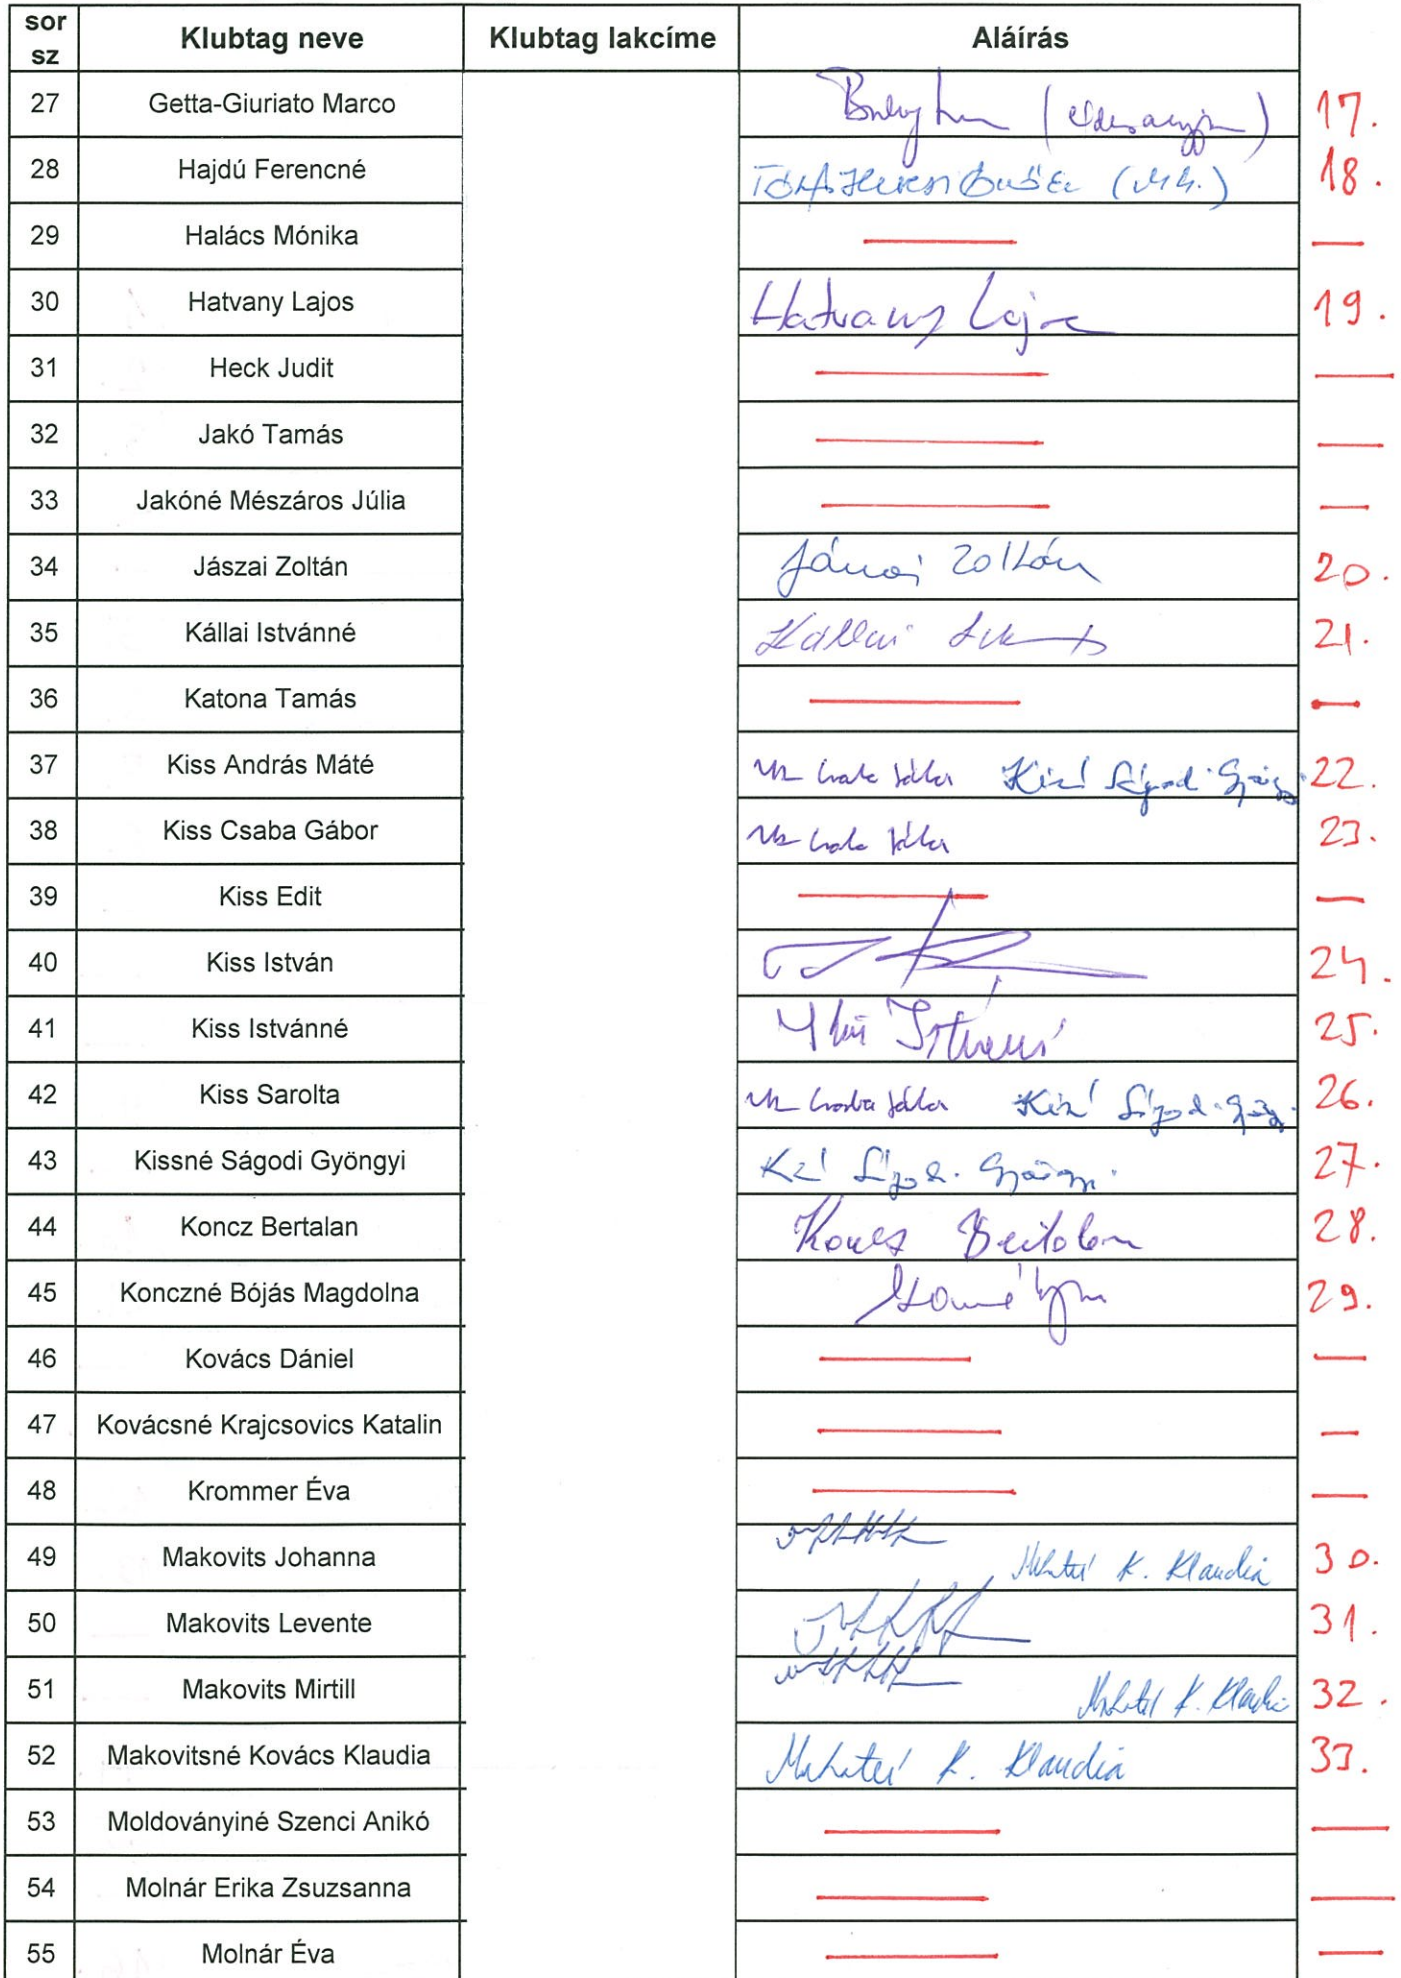 sor sz Klubtag neve Klubtag lakcíme Aláírás
27 Getta-Giuriato Marco 17.
28 Hajdú Ferencné 18.
29 Halács Mónika —
30 Hatvany Lajos Hatvany Lajos 19.
31 Heck Judit —
32 Jakó Tamás —
33 Jakóné Mészáros Júlia —
34 Jászai Zoltán Jászai Zoltán 20.
35 Kállai Istvánné Kállai 21.
36 Katona Tamás —
37 Kiss András Máté 22.
38 Kiss Csaba Gábor 23.
39 Kiss Edit —
40 Kiss István 24.
41 Kiss Istvánné Kiss Istvánné 25.
42 Kiss Sarolta 26.
43 Kissné Ságodi Gyöngyi 27.
44 Koncz Bertalan Koncz Bertalan 28.
45 Konczné Bójás Magdolna 29.
46 Kovács Dániel —
47 Kovácsné Krajcsovics Katalin —
48 Krommer Éva —
49 Makovits Johanna K. Klaudia 30.
50 Makovits Levente 31.
51 Makovits Mirtill K. Klaudia 32.
52 Makovitsné Kovács Klaudia K. Klaudia 33.
53 Moldoványiné Szenci Anikó —
54 Molnár Erika Zsuzsanna —
55 Molnár Éva —